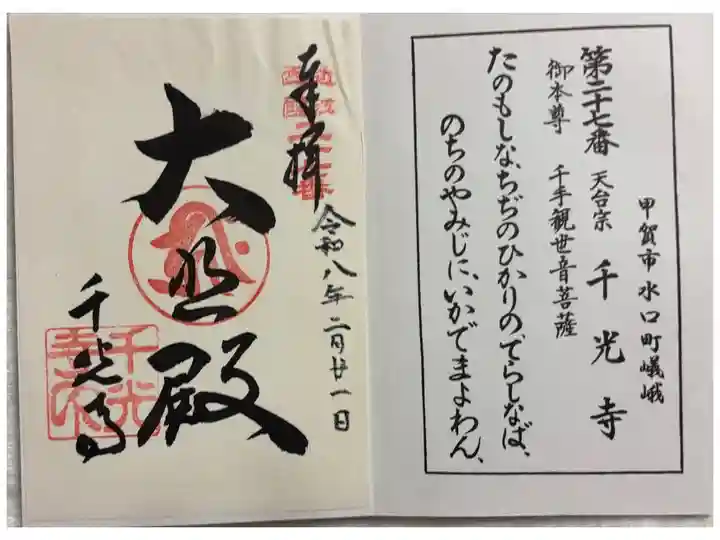 甲賀市水口町嶬峨
第二十七番 天台宗 千光寺
御本尊 千手観世音菩薩
たのもしな、ちぢのひかりのてらしなば、
のちのやみじに、いかでまよわん、
奉拝
近江西國二十七番
令和八年二月廿一日
大悲殿
千光寺
千光寺印